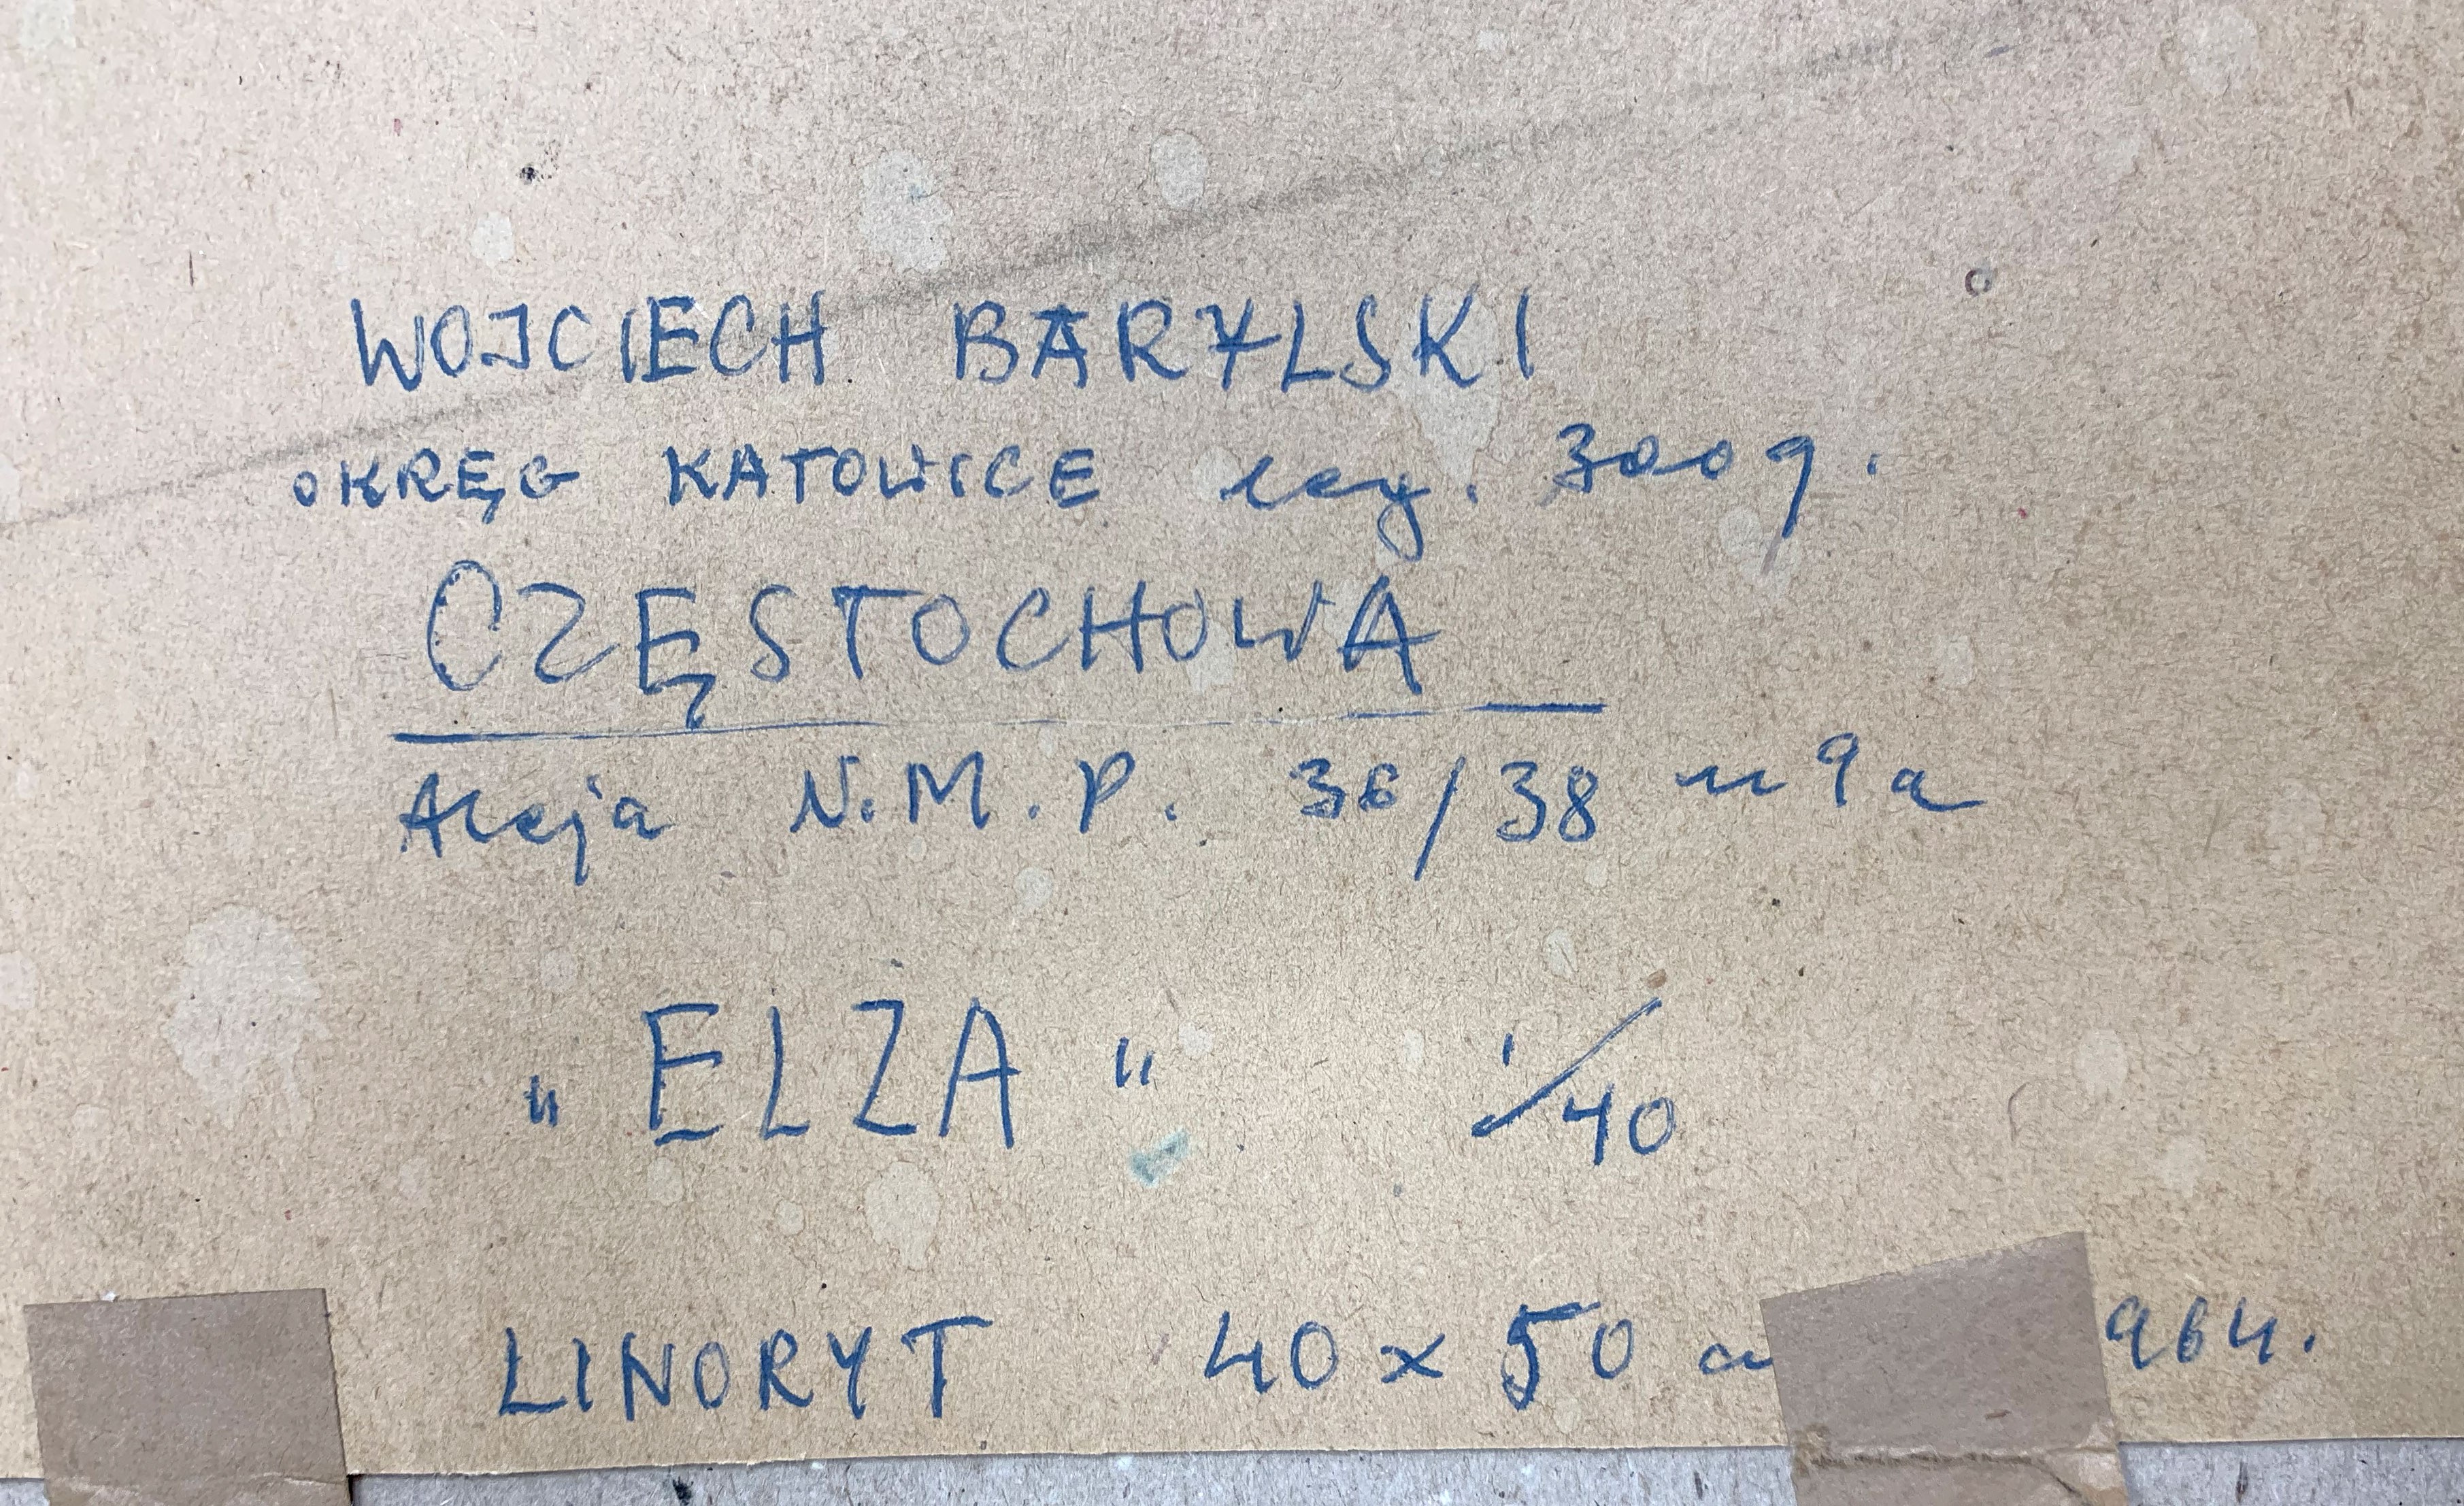 WOJCIECH BARYLSKI
OKRĘG KATOWICE leg. 3009.
CZĘSTOCHOWA
Aleja N.M.P. 36/38 m 9a
„ELZA" 1/40
LINORYT 40 x 50 964.